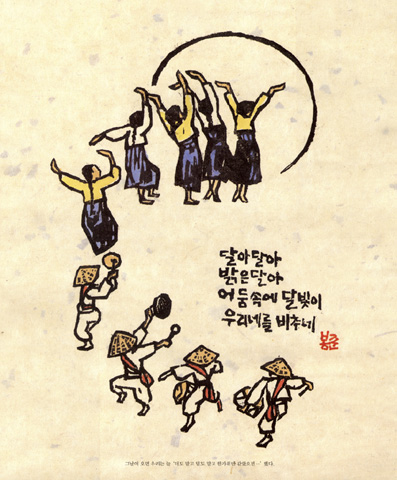 달아달아
밝은달아
어둠속에 달빛이
우리네를 비추네
봉준
그날이 오면 우리는 늘 "더도 말고 덜도 말고 한가위만 같을소냐